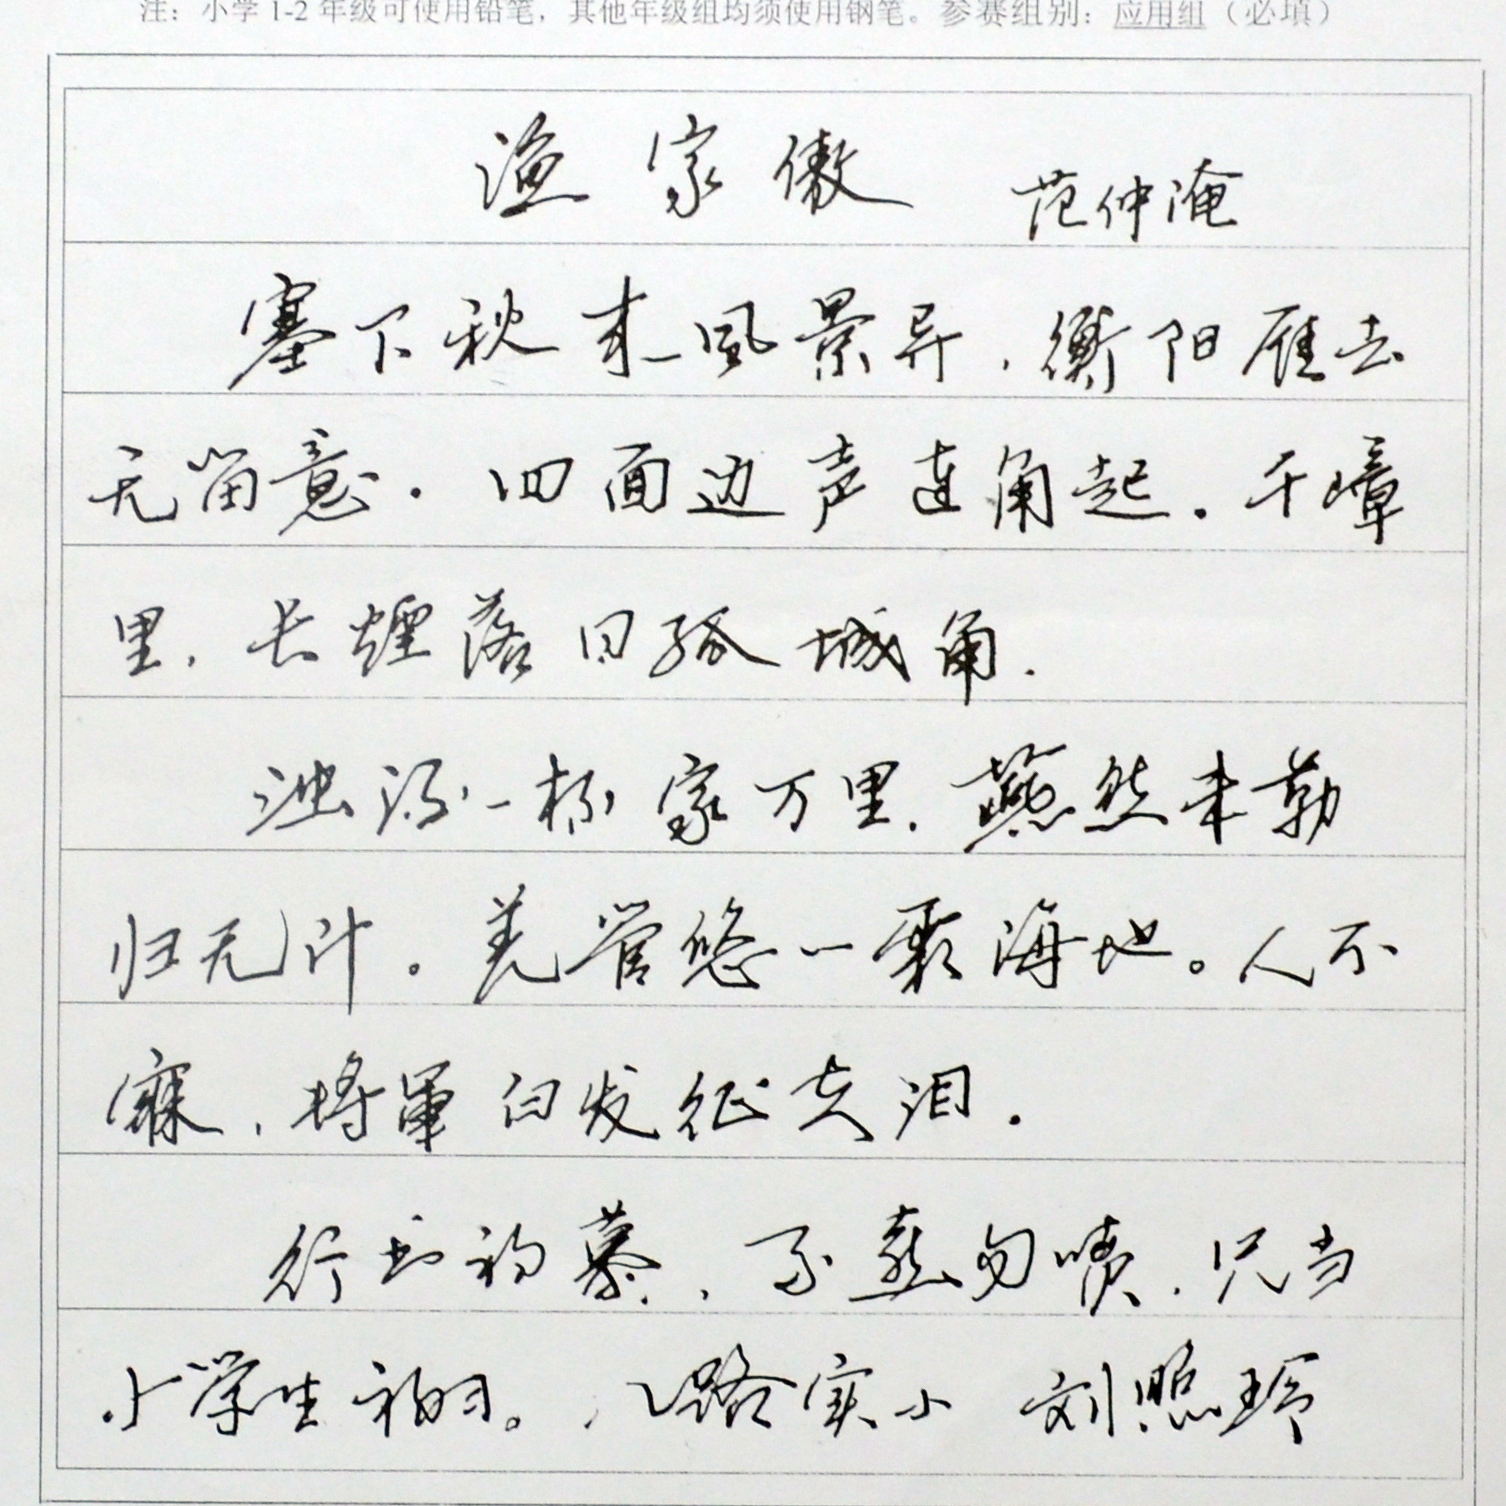 注：小学1-2年级可使用铅笔，其他年级组均须使用钢笔。参赛组别：应用组（必填）
渔家傲 范仲淹
塞下秋来风景异，衡阳雁去
无留意。四面边声连角起。千嶂
里，长煙落日孤城角。
浊酒一杯家万里，燕然未勒
归无计。羌管悠一霜海地。人不
寐，将軍白发征夫泪。
行书初摹，不甚勿喷，只当
小学生初习。八路实小 刘照玲